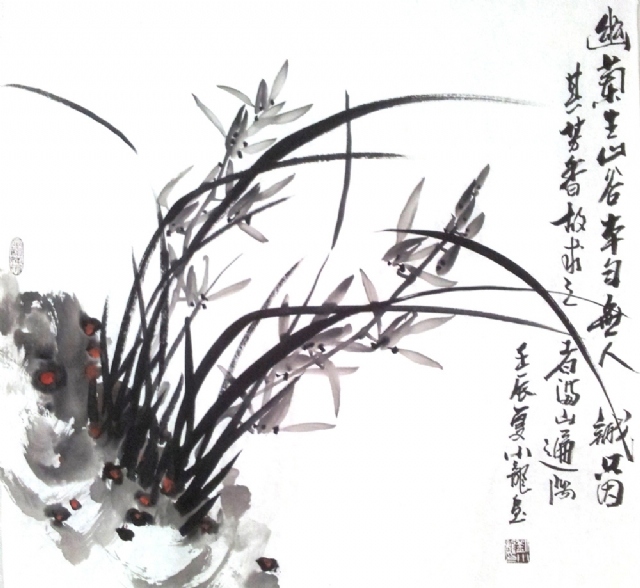 幽蘭生山谷本自無人識只因
其芳香故求之者滿山遍隅
壬辰夏小龍画